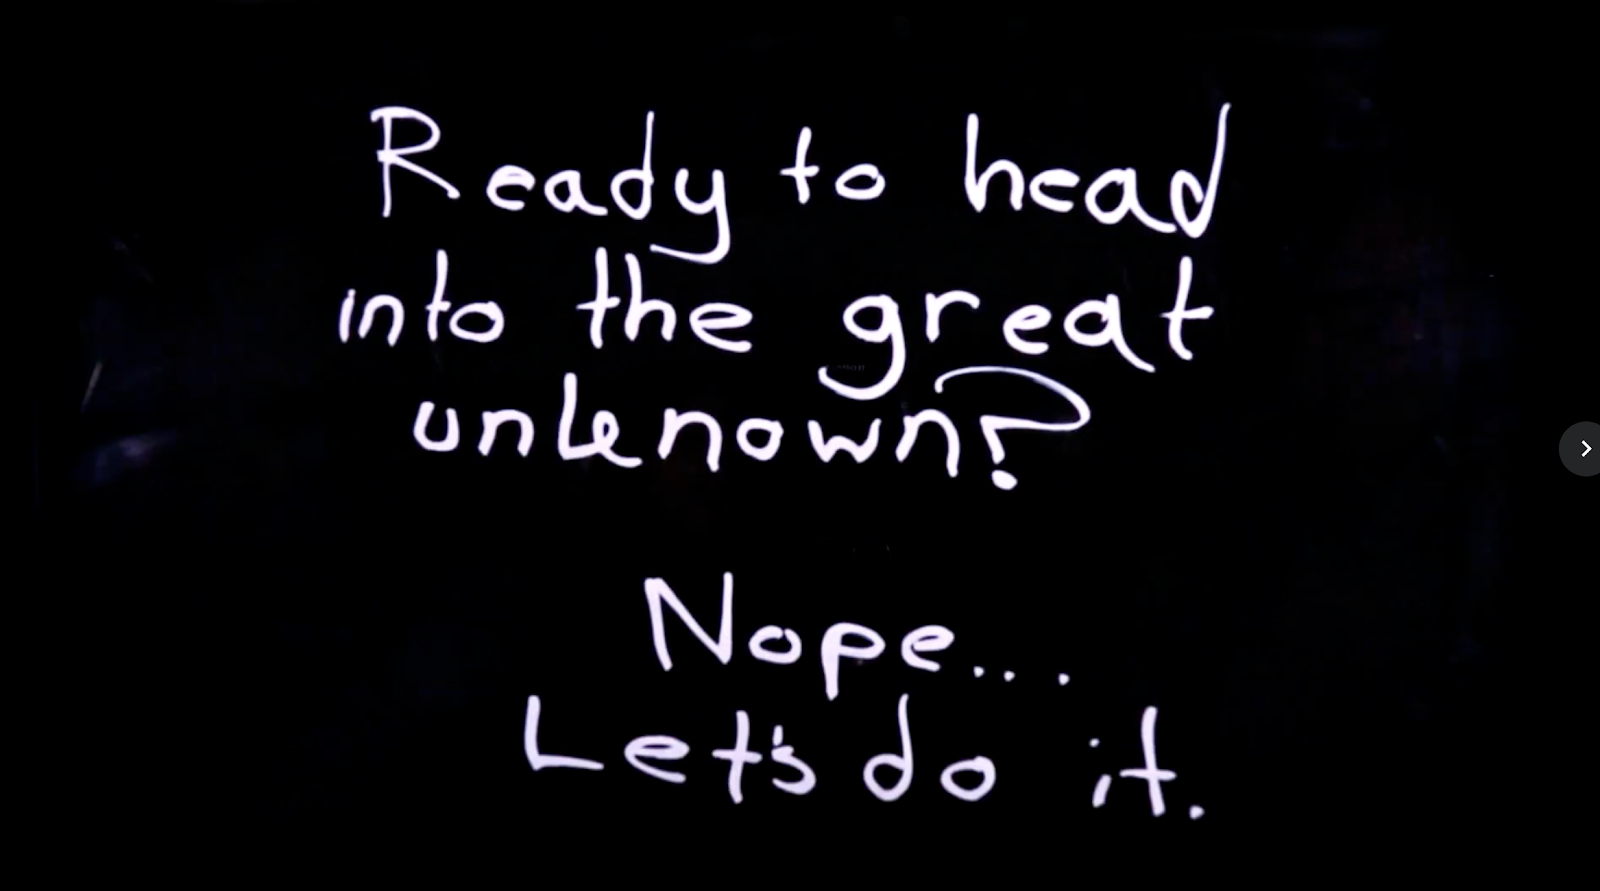 Ready to head
into the great
unknown?
Nope...
Let's do it.